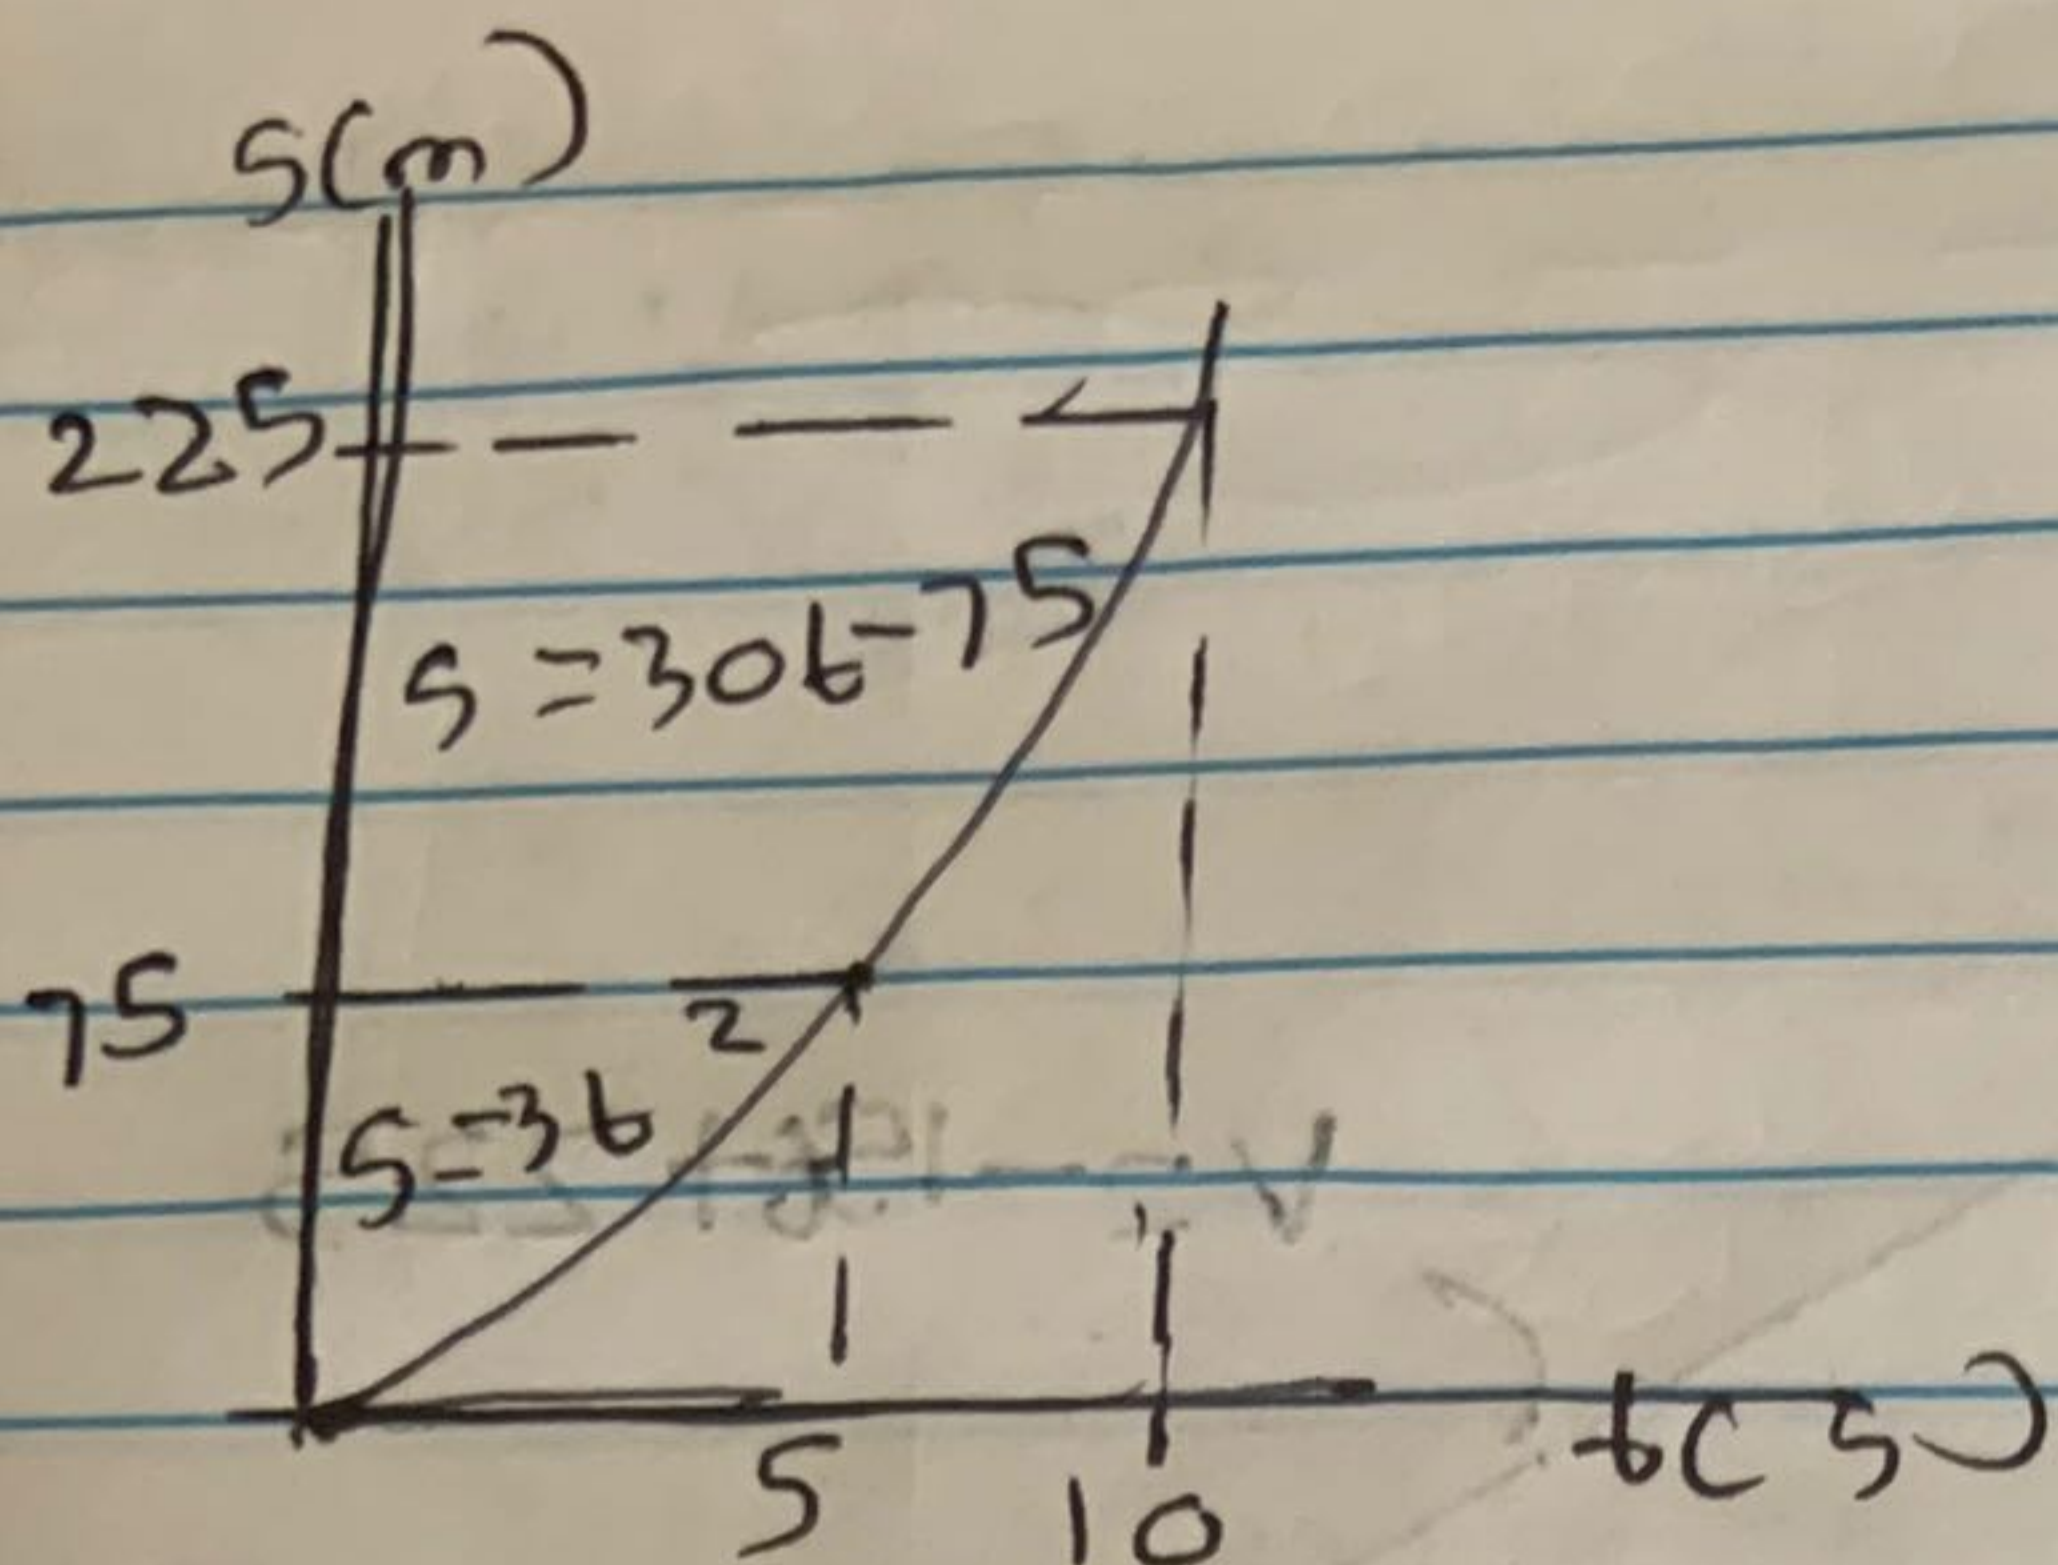 S(m)
225
S = 30t - 75
75
2
S = 3t
5
10
t(s)